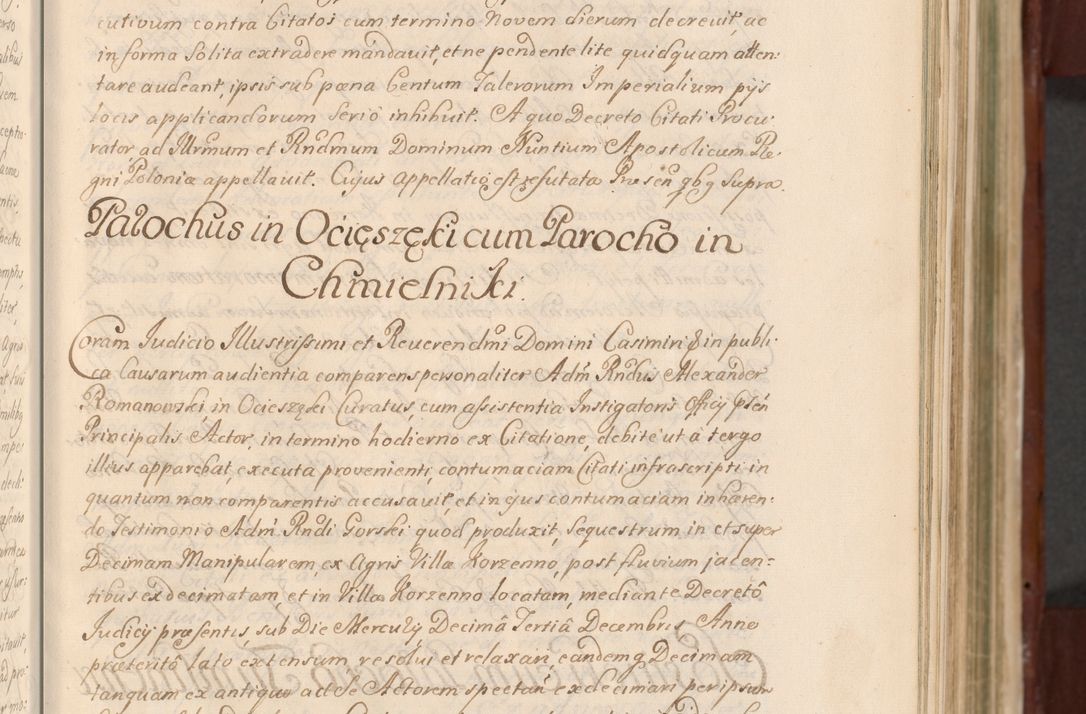 cutivum contra Citatos cum termino Novem dierum decrevit, ac
in forma Solita extradere mandavit, et ne pendente lite quidquam atten:
tare audeant, ipsis sub pœna Centum Talerorum Imperialium pijs
locis applicandorum serio inhibuit. A quo Decreto Citati Procu:
rator ad Illrmum et Rndmum Dominum Nuntium Apostolicum Re:
gni Poloniæ appellavit. Cujus appellatio est refutata Præsen qbg Supra.
Parochus in Ocięszęki cum Parocho in
Chmielniki.
Coram Judicio Illustrissimi et Reverendmi Domini Casimiri & in publi:
ca Causarum audientia comparens personaliter Adm Rndus Alexander
Romanowski in Ocieszęki Curatus, cum assistentia Instigatoris Officij psen
Principalis Actor, in termino hodierno ex Citatione, debite ut a tergo
illius apparebat, executa provenienti, contumaciam Citati infrascripti in
quantum non comparentis accusavit, et in ejus contumaciam inhæren:
do Testimonio Adm Rndi Gorski quod produxit, Sequestrum in et super
Decimam Manipularem, ex Agris Villæ Korzenno, post fluvium jacen=
tibus exdecimatam, et in Villa Korzenno locatam, mediante Decreto
Judicij præsentis, sub Die Mercurij Decima Tertia Decembris Anno
præterito lato extensum, resolvi et relaxari, eandemq Decimam
tanquam ex antiquo ad se Actorem spectan exdecimari per ipsum